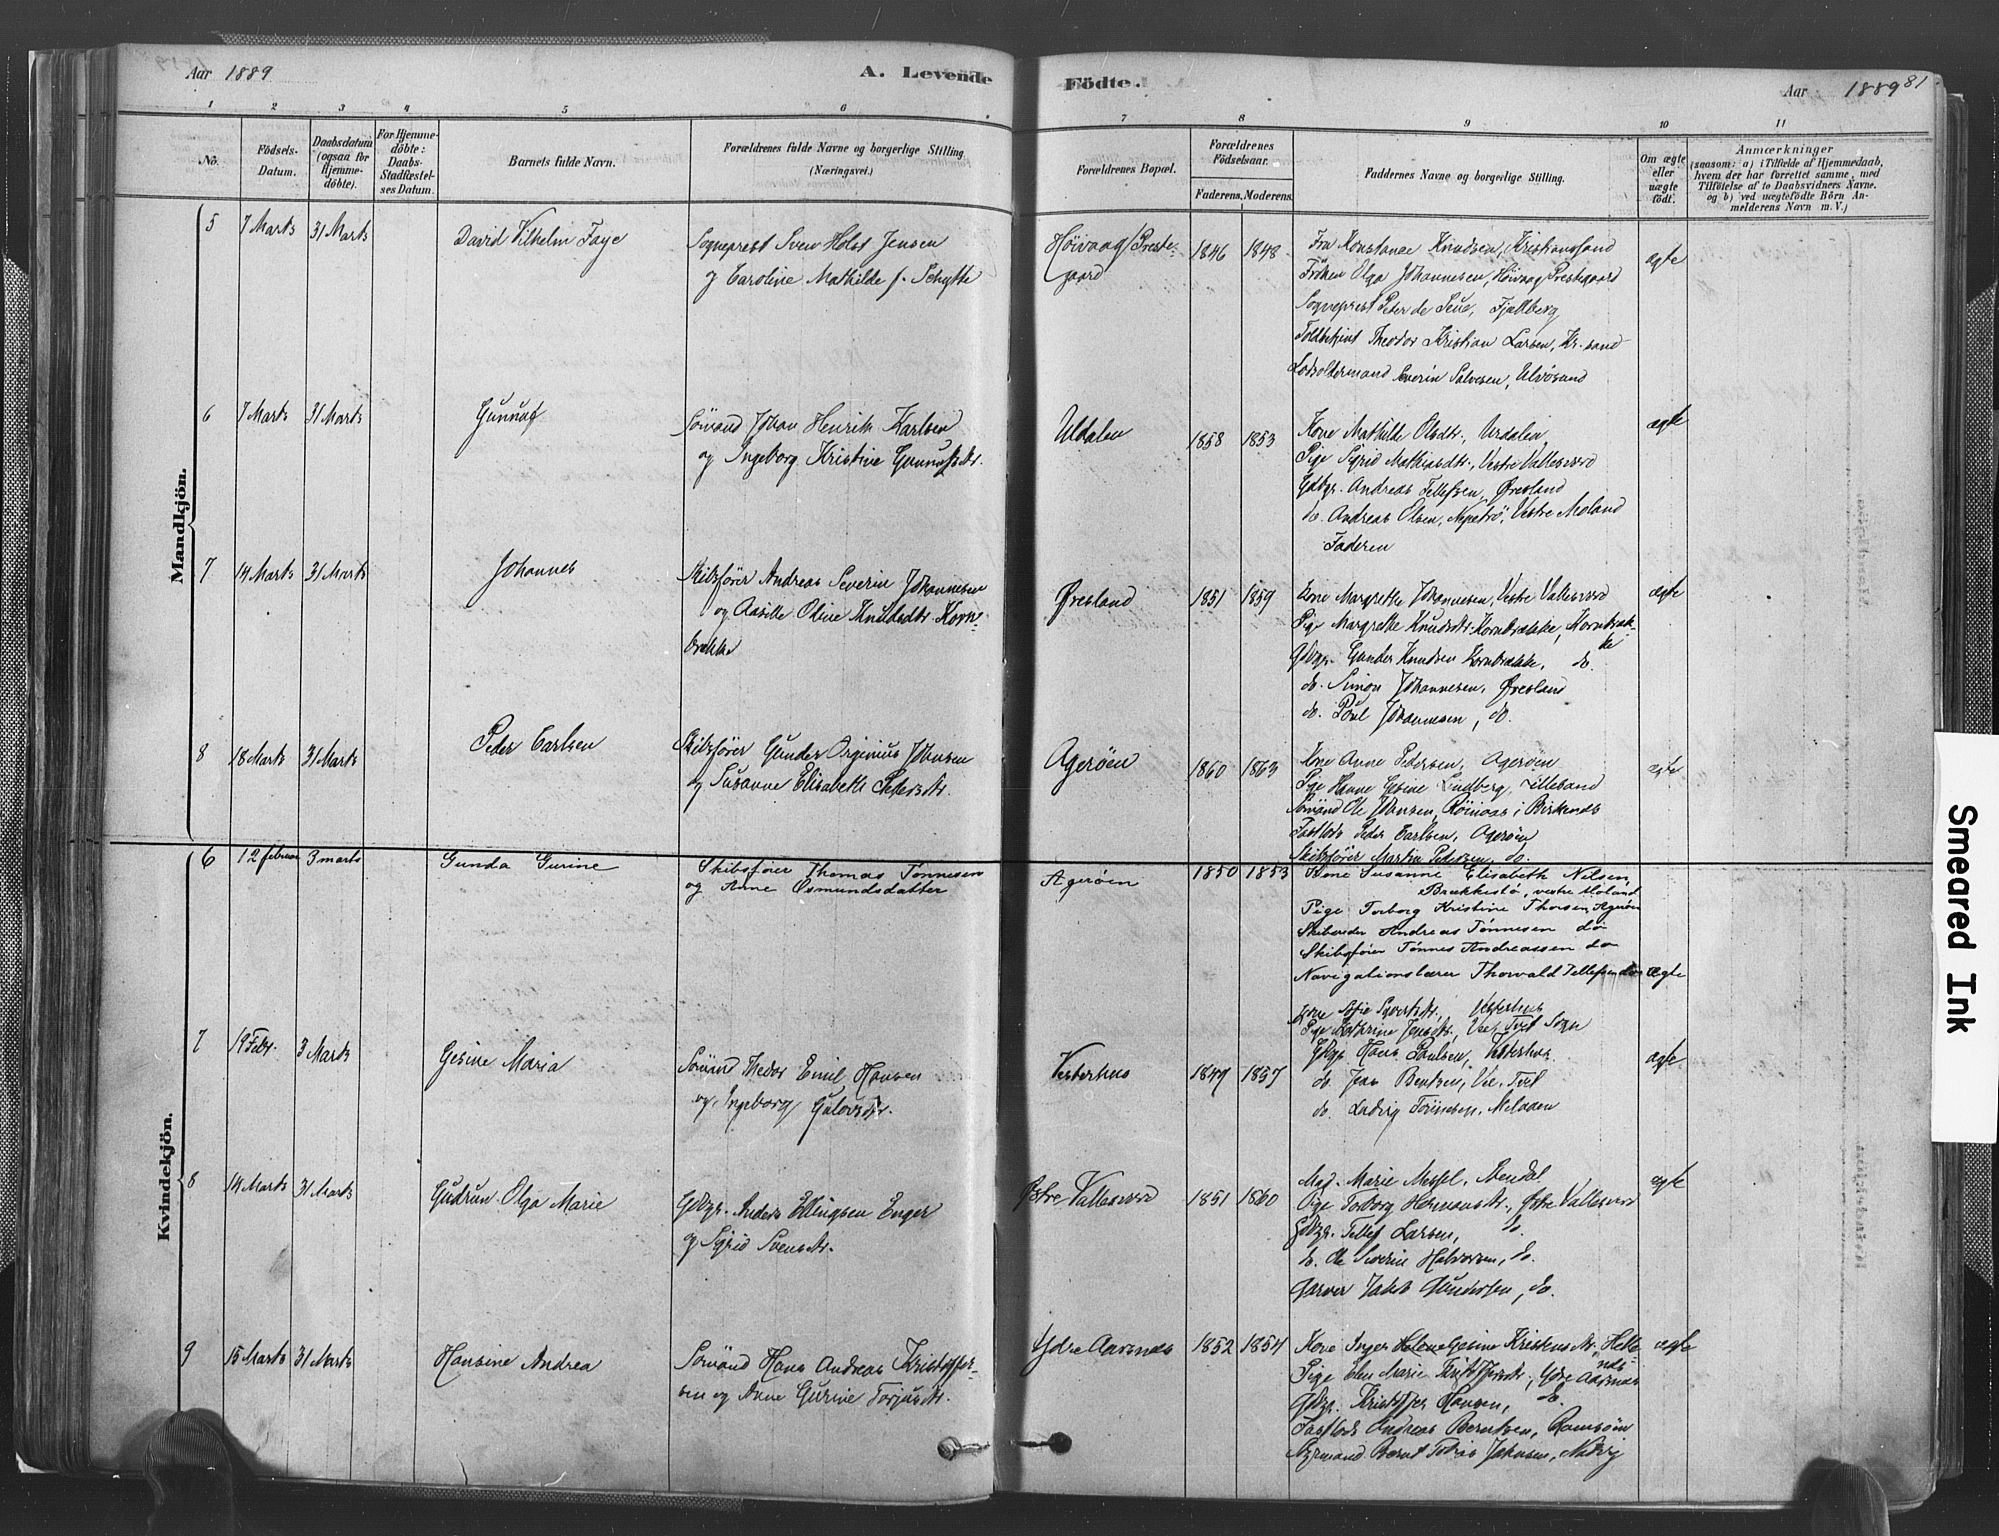 Aar 1889
A. Levende
Födte.
Aar 1889
81
1 2 3 4 5 6 7 8 9 10 11
No.
Födsels-
Datum.
Daabsdatum
(ogsaa for
Hjemme-
döbte).
For Hjemme-
döbte:
Daabs-
Stadfæstel-
ses Datum.
Barnets fulde Navn.
Forældrenes fulde Navne og borgerlige Stilling
(Næringsvei.)
Forældrenes Bopæl.
Forældrenes
Födselsaar.
Faderens. Moderens.
Faddernes Navne og borgerlige Stilling.
Om ægte
eller
uægte
födt.
Anmærkninger
(saasom: a) i Tilfælde af Hjemmedaab,
hvem der har forrettet samme, med
Tilföielse af to Daabsvidners Navne.
og b) ved uægtefödte Börn An-
melderens Navn m. V.)
Mandkjön.
5 7 Marts 31 Marts David Vilhelm Faye
Sogneprest Sven Holst Jensen
og Caroline Mathilde f. Schytte
Höivaag Preste-
gaard
1846 1848
Fru Konstanse Knudsen, Kristianssand
Fröken Olga Johannesen, Höivaag Prestegaard
Sogneprest Peter de Seue, Fjellberg
Toldbetjent Theodor Kristian Larsen, Kr.sand
Lodsoldermand Severin Salvesen, Ulvösund
ægte
6 7 Marts 31 Marts Gunnuf
Sömand Johan Henrik Karlsen
og Ingeborg Kristine Gunnufsdtr.
Urdalen
1858 1853
Kone Mathilde Olsdtr., Urdalen
Pige Sigrid Mathiasdtr., Vestre Vallesværd
Gdbgr. Andreas Tellefsen, Øresland
do. Andreas Olsen, Nepetrö, Vestre Moland
Faderen
ægte
7 14 Marts 31 Marts Johannes
Skibsförer Andreas Severin Johannesen
og Aasille Oline Knudsdtr. Korn-
brække
Øresland
1851 1859
Kone Margrethe Johannesen, Vestre Vallesværd
Pige Margrethe Knudsdtr. Kornbrække, Kornbræk-
ke
Gdbgr. Gunder Knudsen Kornbrække, do.
do. Simon Johannesen, Øresland
do. Poul Johannesen, do.
ægte
8 18 Marts 31 Marts Peder Carlsen
Skibsförer Gunder Orginius Johnsen
og Susanne Elisabeth Pedersdtr.
Ageröen
1860 1863
Kone Anne Pedersen, Ageröen
Pige Hanne Gesine Lindberg, Lillesand
Sömand Ole Johnsen, Röinaas i Birkenæs
Fastlods Peder Carlsen, Ageröen
Skibsförer Martin Pedersen, do.
ægte
Kvindekjön.
6 12 februar 3 marts Gunda Gurine
Skibsförer Thomas Tönnesen
og Anne Osmundsdatter
Ageröen
1850 1853
Kone Susanne Elisabeth Nilsen,
Brækkestö, vestre Moland
Pige Torborg Kristine Thorsen, Ageröen
Skibsreder Andreas Tönnesen do
Skibsförer Tönnes Andreassen do
Navigationslærer Thorvald Tellefsen do
ægte
7 19 Febr. 3 Marts Gesine Maria
Sömand Thedor Emil Hansen
og Ingeborg Gulovsdtr.
Vesterhus
1847 1857
Kone Sofie Syvertsdtr., Vesterhus
Pige Kathrine Jensdtr., Vee, Tveit Sogn
Gdbgr. Hans Poulsen, Vesterhus
do. Jens Bentsen, Vee, Tveit
do. Ludvig Tönnesen,
ægte
8 14 Marts 31 Marts Gudrun Olga Marie
Gdbgr. Anders Ellingsen Enger
og Sigrid Svensdtr.
Østre Vallesværd
1851 1860
Mad. Marie Messel, Arendal
Pige Torborg Hermansdtr., Østre Vallesværd
Gdbgr. Tellef Larsen, do.
do. Ole Severin Halvorsen, do.
Garver Jakob Gundersen, do.
ægte
9 15 Marts 31 Marts Hansine Andrea
Sömand Hans Andreas Kristoffer-
sen og Anne Gurine Torjusdtr.
Ydre Aarsnæs
1852 1854
Kone Inger Helene Gesine Kristensdtr., Helle
Pige Elen Marie Kristoffersdtr., Ydre Aarsnæs
Gdbgr. Kristoffer Hansen, do.
Fastlods Andreas Berntsen, Ramsöen
Styrmand Bernt Tobias Jakobsen,
ægte
Smeared Ink